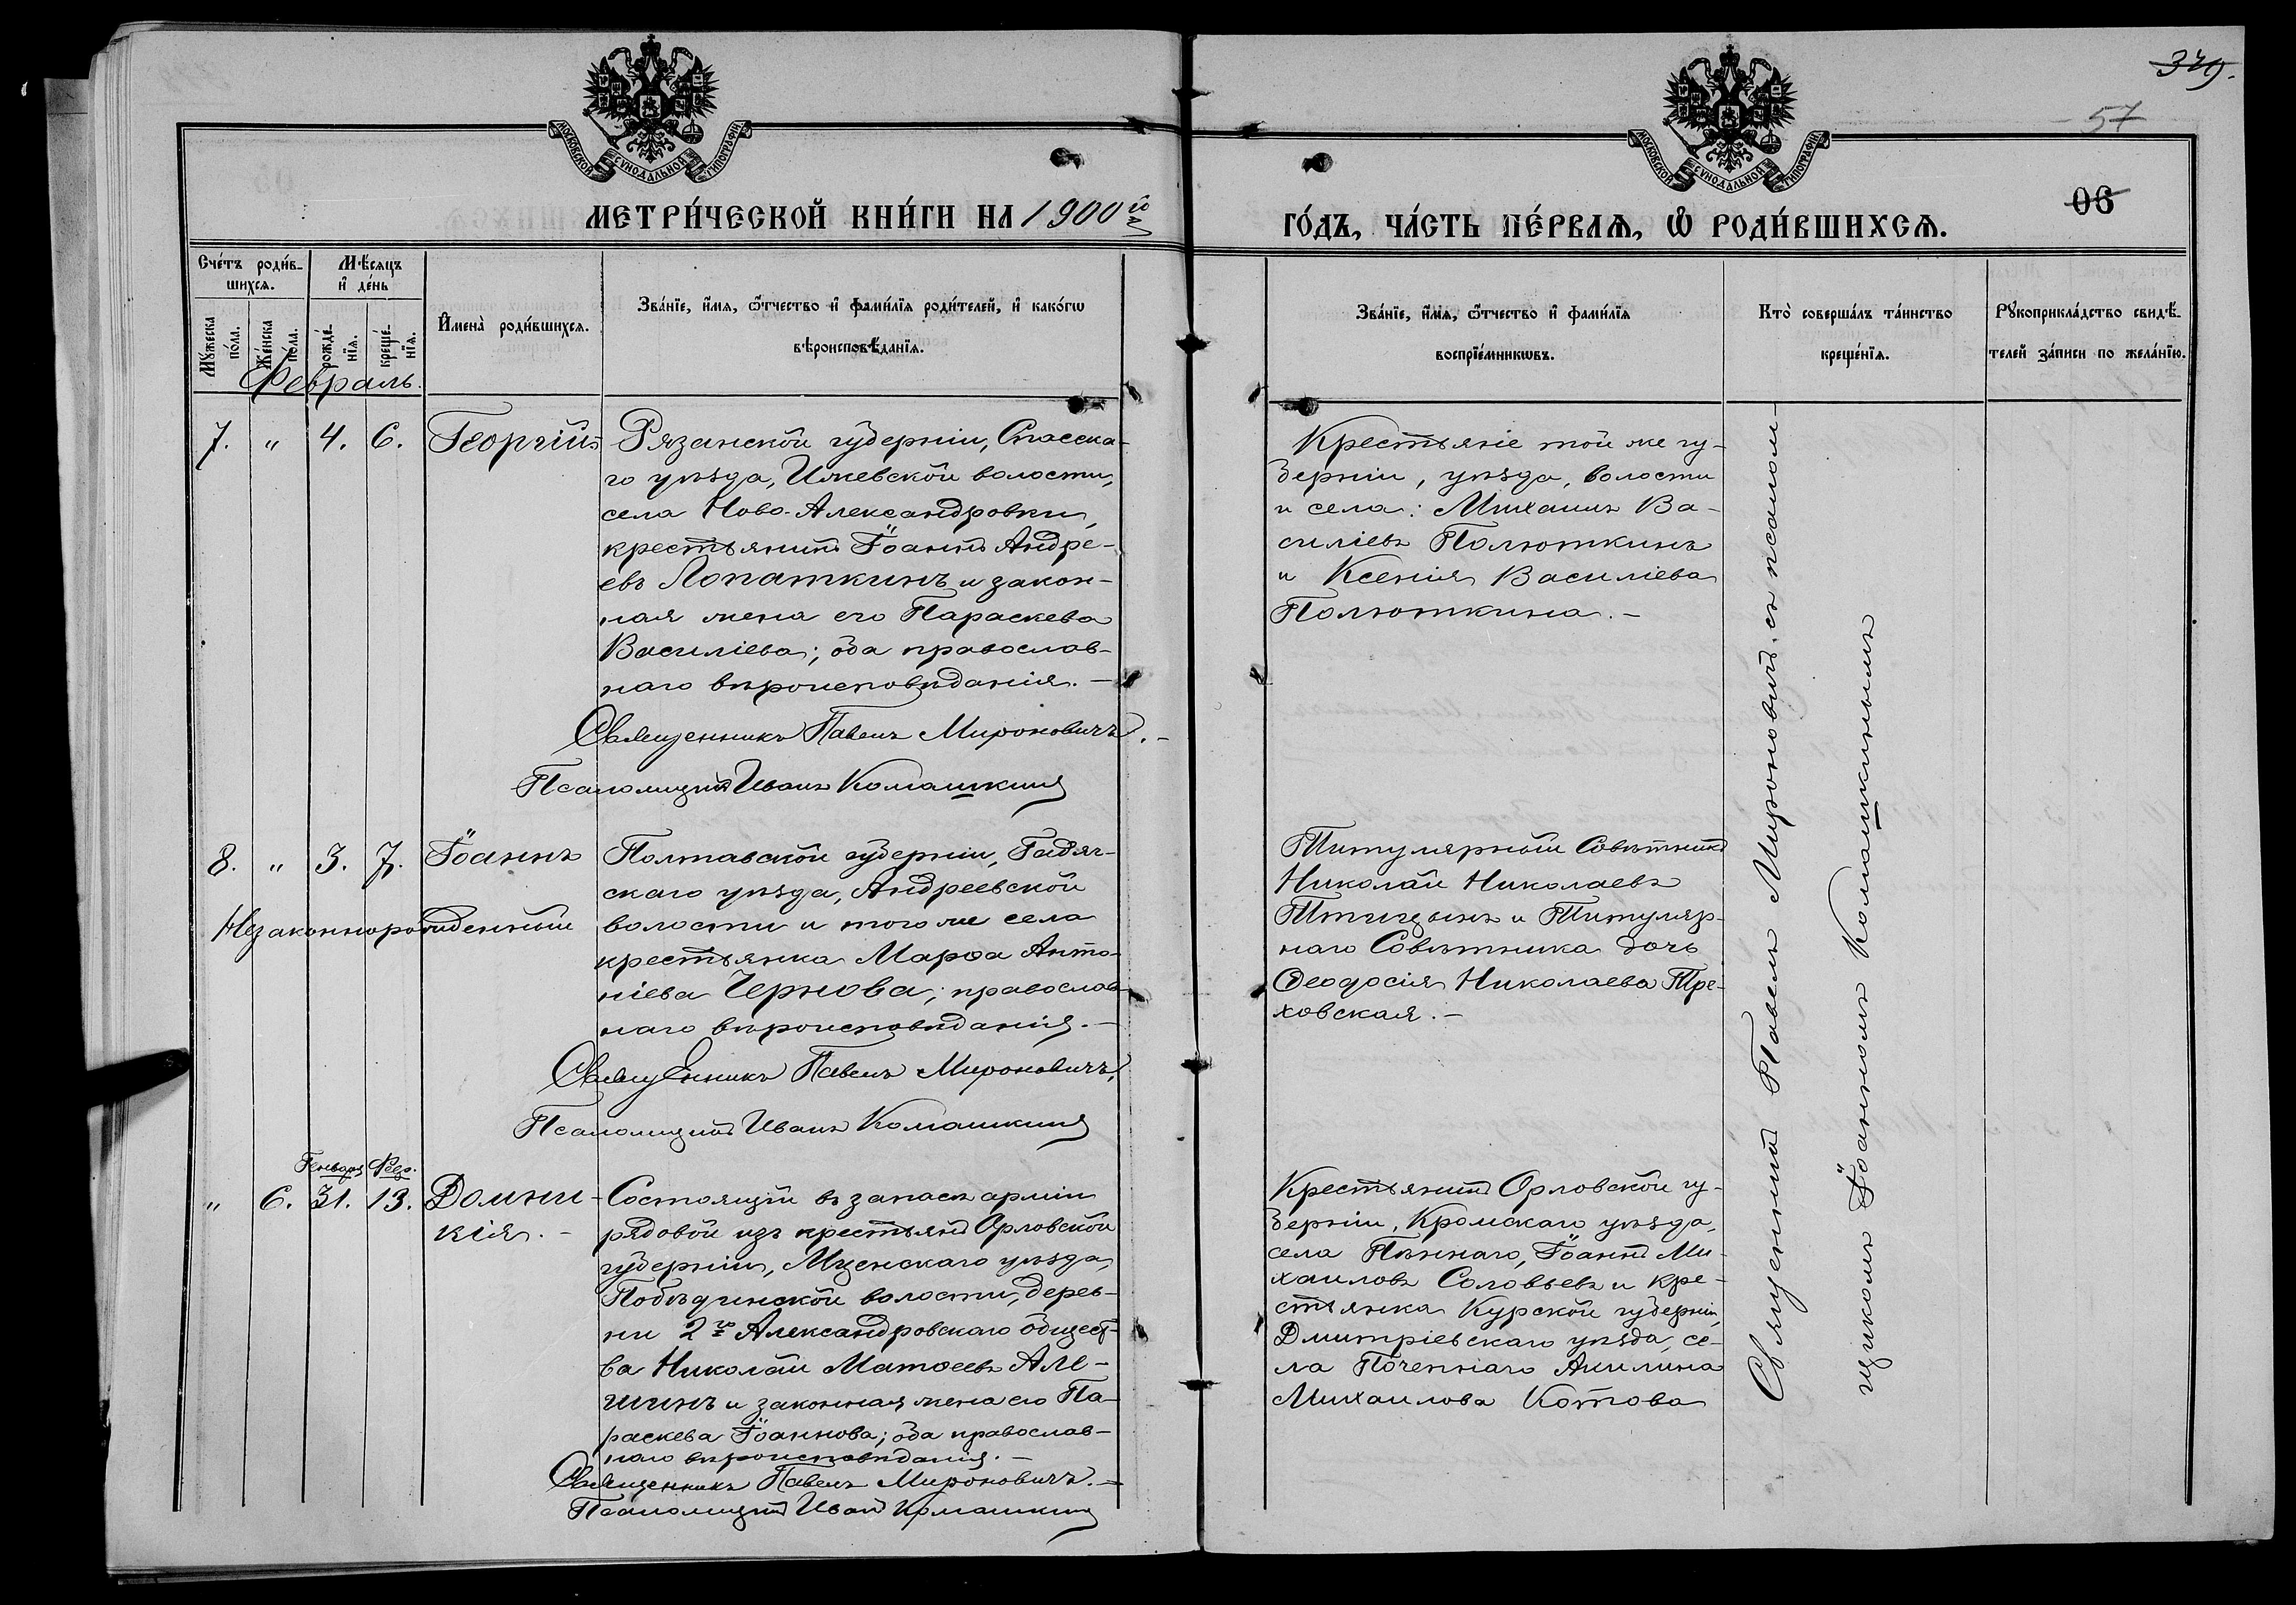 349.
57
МОСКОВСКОЙ СѴНОДАЛЬНОЙ ТИПОГРАФІИ
МОСКОВСКОЙ СѴНОДАЛЬНОЙ ТИПОГРАФІИ
06
МЕТРИ́ЧЕСКОЙ КНИ́ГИ НА 1900й
ГО́ДЪ, ЧА́СТЬ ПЕ́РВАѦ, Ѽ РОДИ́ВШИХСѦ.
Сче́тъ роди́в-
шихсѧ.
Мꙋ́жеска
по́ла.
Же́нска
по́ла.
Мѣ́сѧцъ
и҆ де́нь
рожде́-
нїѧ.
креще́-
нїѧ.
И҆мена̀ роди́вшихсѧ.
Зва́нїе, и҆́мѧ, ѻ҆́тчество и҆ фами́лїѧ роди́телей, и҆ како́гѡ
вѣроисповѣ́данїѧ.
Зва́нїе, и҆́мѧ, ѻ҆́тчество и҆ фами́лїѧ
воспрїе́мникѡвъ.
Кто̀ соверша́лъ та́инство
креще́нїѧ.
Рꙋкоприкла́дство свидѣ́-
телей за́писи по жела́нїю.
Февраль.
7. " 4. 6. Георгій
Рязанской губерніи, Спасска-
го уѣзда, Ижевской волости,
села Ново-Александровки,
крестьянинъ Іоаннъ Андре-
евъ Лопаткинъ и закон-
ная жена его Параскева
Василіева; оба православ-
наго вѣроисповѣданія. —
Священникъ Павелъ Мироновичъ. —
Псаломщикъ Иванъ Комашкинъ
Крестьяніе той же гу-
берніи, уѣзда, волости
и села: Михаилъ Ва-
силіевъ Полюткинъ
и Ксенія Василіева
Полюткина. —
8. " 3. 7. Іоаннъ
Незаконнорожденный
Полтавской губерніи, Гадяч-
скаго уѣзда, Андреевской
волости и того же села
крестьянка Марѳа Анто-
ніева Чернова; православ-
наго вѣроисповѣданія. —
Священникъ Павелъ Мироновичъ,
Псаломщикъ Иванъ Комашкинъ
Титулярный Совѣтникъ
Николай Николаевъ
Птицынъ и Титуляр-
наго Совѣтника дочь
Ѳеодосія Николаева Тре-
ховская. —
Генваря Февр.
" 6. 31. 13. Домни-
кія. —
Состоящій въ запасѣ арміи
рядовой изъ крестьянъ Орловской
губерніи, Мценскаго уѣзда,
волости, дерев-
ни 2го Александровскаго общест-
ва Николай Матѳеевъ Але-
шинъ и законная жена его Па-
раскева Іоаннова; оба православ-
наго вѣроисповѣданія. —
Священникъ Павелъ Мироновичъ. —
Псаломщикъ Иванъ Комашкинъ
Крестьянинъ Орловской гу-
берніи, Кромскаго уѣзда,
села Пѣннаго, Іоаннъ Ми-
хаиловъ Соловьевъ и кре-
стьянка Курской губерніи,
Дмитріевскаго уѣзда, се-
ла Акилина
Михаилова Котова
Священникъ Павелъ Мироновичъ съ псалом-
щикомъ Іоанномъ Комашкинымъ